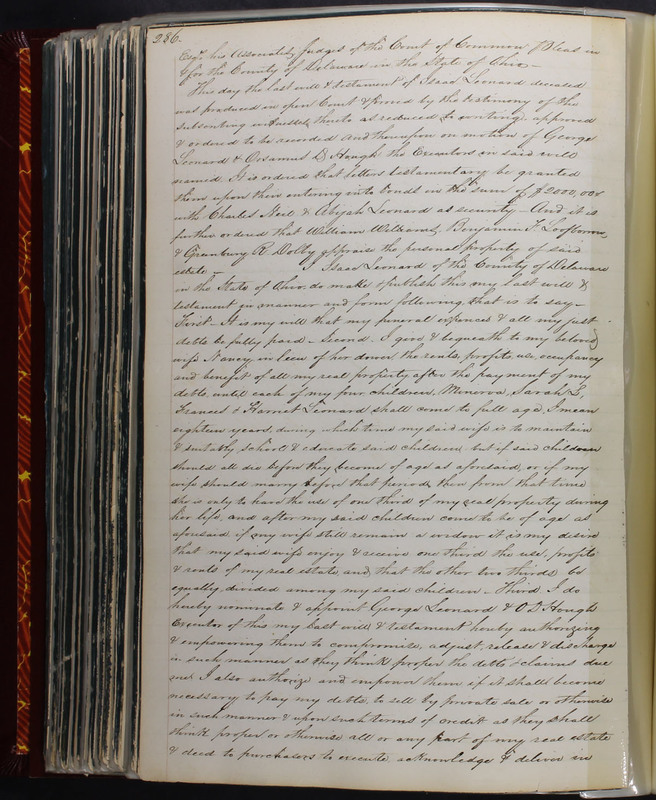 236.
Esqrs his Associates, Judges of the Court of Common Pleas in
& for the County of Delaware in the State of Ohio—
This day the last will & testament of Isaac Leonard deceased
was produced in open Court & proved by the testimony of the
subscribing witnesses thereto as reduced to writing, approved
& ordered to be recorded And thereupon on motion of George
Leonard & Orsamus D Hough the Executors in said will
named. It is ordered that letters testamentary be granted
them upon their entering into bonds in the sum of $2000,00
with Charles Neil & Abijah Leonard as security— And it is
further ordered that William Williams, Benjamin F. Loofborrow,
& Granbury R. Dolby appraise the personal property of said
estate — I Isaac Leonard of the County of Delaware
in the State of Ohio, do make & publish this my last will &
testament in manner and form following, that is to say—
First— It is my will that my funeral expences & all my just
debts be fully paid— Second. I give & bequeath to my beloved
wife Nancy, in lieu of her dower, the rents, profits use, occupancy
and benefit of all my real property, after the payment of my
debts, until each of my four children, Minerva, Sarah L,
Frances & Harriet Leonard shall come to full age, I mean
eighteen years, during which time my said wife is to maintain
& suitably school & educate said children, but if said children
should all die before they become of age as aforesaid, or if my
wife should marry before that period, then from that time
she is only to have the use of one third of my real property during
her life, and after my said children come to be of age as
aforesaid, if my wife still remain a widow it is my desire
that my said wife enjoy & receive one third the use, profits
& rents of my real estate, and that the other two thirds be
equally divided among my said children— Third. I do
hereby nominate & appoint George Leonard & O D Hough
Executor of this my last will & testament hereby authorizing
& empowering them to compromise, adjust, release & discharge
in such manner as they think proper the debts & claims due
me. I also authorize and empower them if it shall become
necessary to pay my debts, to sell by private sale or otherwise
in such manner & upon such terms of credit as they shall
think proper or otherwise all or any part of my real estate
& deed to purchasers to execute, acknowledge & deliver in